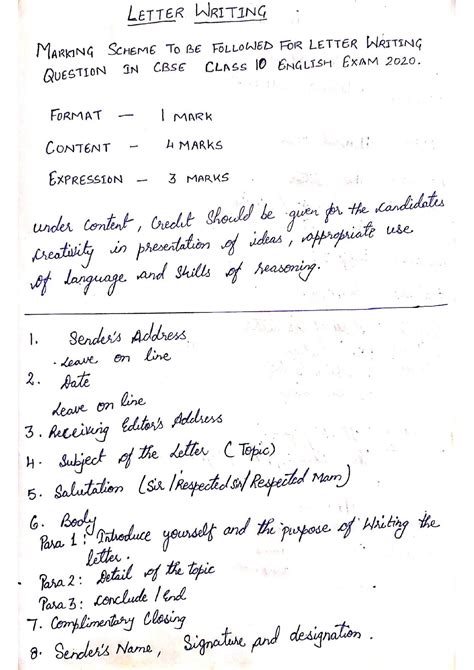 LETTER WRITING
MARKING SCHEME TO BE FOLLOWED FOR LETTER WRITING
QUESTION IN CBSE CLASS 10 ENGLISH EXAM 2020.
FORMAT — 1 MARK
CONTENT — 4 MARKS
EXPRESSION — 3 MARKS
under content, Credit Should be given for the candidates
creativity in presentation of ideas, appropriate use
of language and skills of reasoning.
1. Sender's Address
. Leave on line
2. Date
Leave on line
3. Receiving Editor's Address
4. Subject of the Letter (Topic)
5. Salutation (Sir / Respected Sir / Respected Mam)
6. Body
Para 1: Introduce yourself and the purpose of Writing the
letter.
Para 2: Detail of the topic
Para 3: Conclude / End
7. Complimentary Closing
8. Sender's Name, Signature and designation.